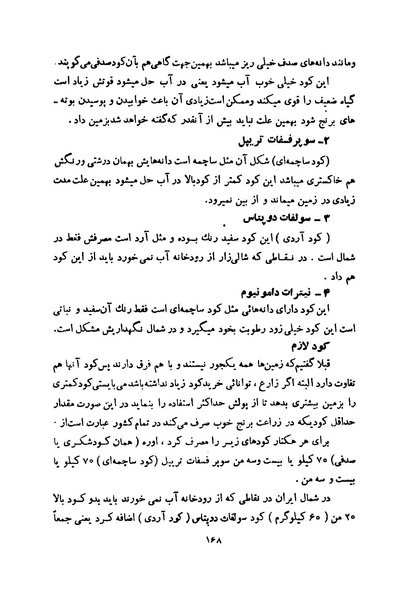 ومانند دانه‌های صدف خیلی ریز میباشد بهمین جهت گاهی هم بآن کود صدفی می‌گویند .
این کود خیلی خوب آب میشود یعنی در آب حل میشود قوتش زیاد است
گیاه ضعیف را قوی میکند وممکن است زیادی آن باعث خوابیدن و پوسیدن بوته ـ
های برنج شود بهمین علت نباید بیش از آنقدر که گفته خواهد شد بزمین داد .
۲ـ سوپر فسفات تریپل
(کود ساچمه‌ای) شکل آن مثل ساچمه است دانه‌هایش بهمان درشتی ورنگش
هم خاکستری میباشد این کود کمتر از کود بالا در آب حل میشود بهمین علت مدت
زیادی در زمین میماند و از بین نمیرود.
۳ ـ سولفات دو پتاس
( کود آردی ) این کود سفید رنك بوده و مثل آرد است مصرفش فقط در
شمال است . در نقاطی که شالی‌زار از رودخانه آب نمی‌خورد باید از این کود
هم داد .
۴ ـ نیترات دامونیوم
این کود دارای دانه‌هائی مثل کود ساچمه‌ای است فقط رنك آن سفید و نباتی
است این کود خیلی زود رطوبت بخود میگیرد و در شمال نگهداریش مشکل است.
کود لازم
قبلا گفتیم که زمین‌ها همه یکجور نیستند و با هم فرق دارند پس کود آنها هم
تفاوت دارد البته اگر زارع ، توانائی خرید کود زیاد نداشته باشد می‌بایستی کود کمتری
را بزمین بیشتری بدهد تا از پولش حداکثر استفاده را بنماید در این صورت مقدار
حداقل کودیکه در زراعت برنج خوب صرف می‌کند در تمام کشور عبارت است از .
برای هر هکتار کودهای زیر را مصرف کرد ، اوره ( همان کود شکری یا
صدفی) ۷۰ کیلو یا بیست وسه من سوپر فسفات تریپل (کود ساچمه‌ای ) ۷۰ کیلو یا
بیست و سه من .
در شمال ایران در نقاطی که از رودخانه آب نمی خورند باید بدو کود بالا
۲۰ من ( ۶۰ کیلوگرم ) کود سولفات دوپتاس ( کود آردی ) اضافه کرد یعنی جمعاً
۱۶۸